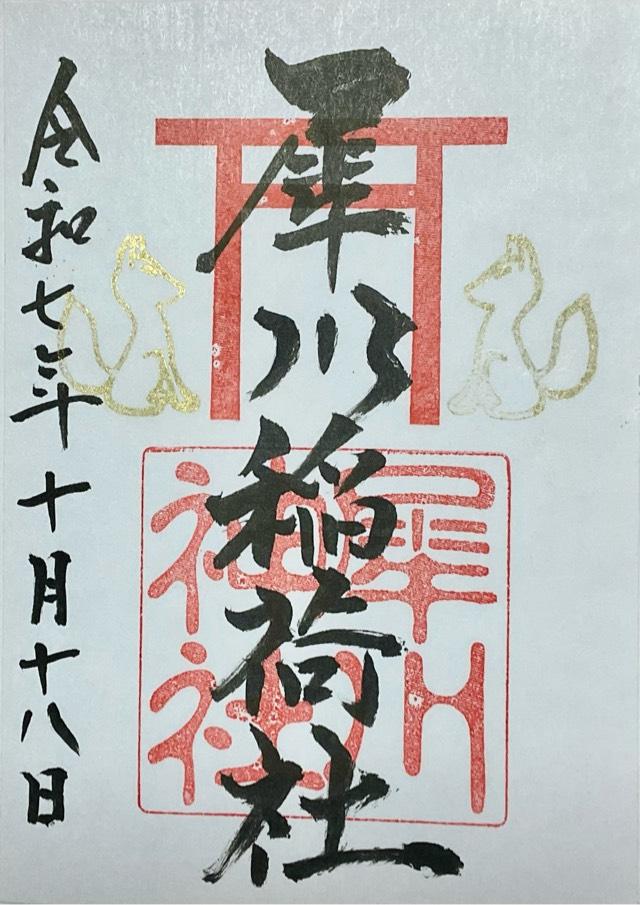 犀川稲荷社
犀川
神社
令和七年十月十八日